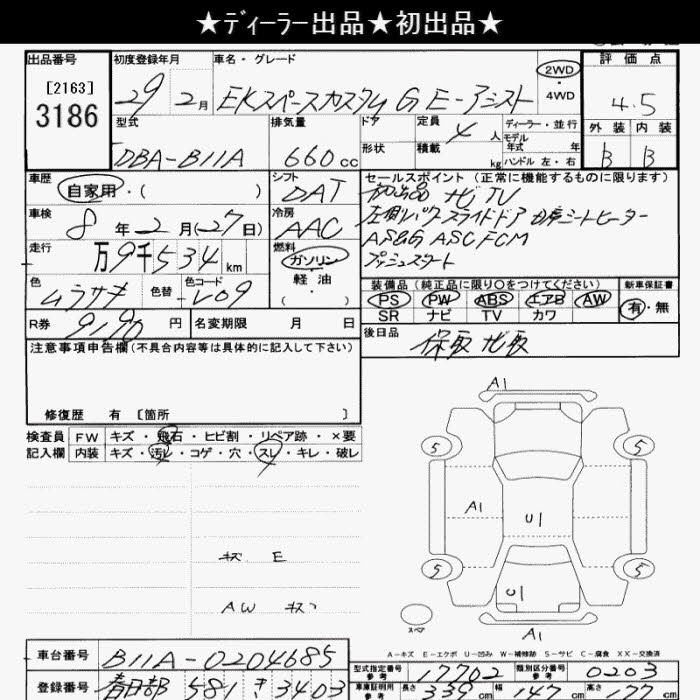 ★ディーラー出品★初出品★
出品番号 初度登録年月 車名・グレード 2WD・4WD 評価点
[2163]
3186
29年2月 EKスペースカスタム G E-アシスト 4.5
型式 排気量 ドア 定員 4人 ディーラー・並行 外装 内装
DBA-B11A 660cc 形状 積載 kg モデル年式 年 ハンドル 左・右 B B
車歴 シフト セールスポイント(正常に機能するものに限ります)
自家用・( ) DAT 初出品 ナビ TV
車検 冷房 左側パワースライドドア 助席シートヒーター
8年2月(27日) AAC AS&G ASC FCM
走行 燃料 プッシュスタート
万9千534km ガソリン・軽油・
色 色替 色コード 装備品(純正品に限り○をつけてください) 新車保証書
ムラサキ L09 PS PW ABS エアB AW 有・無
SR ナビ TV カワ
R券 9190円 名変期限 月 日 後日品
保取 ナビ取
注意事項申告欄(不具合内容等は具体的に記入して下さい)
修復歴 有 [箇所 ]
検査員 FW キズ・飛石・ヒビ割・リペア跡・×要
記入欄 内装 キズ・汚レ・コゲ・穴・スレ・キレ・破レ
A1
5 5
A1 U1
キズ E
5 5
U1
AW キズ
スペア A1
A-キズ E-エクボ U-凹み W-補修跡 S-サビ C-腐食 XX-交換済
車台番号 B11A-0204685
型式指定番号 参考 17702 類別区分番号 参考 0203
登録番号 春日部 581 き 3403
車庫証明用 参考 長さ 339cm 幅 147cm 高さ 177cm